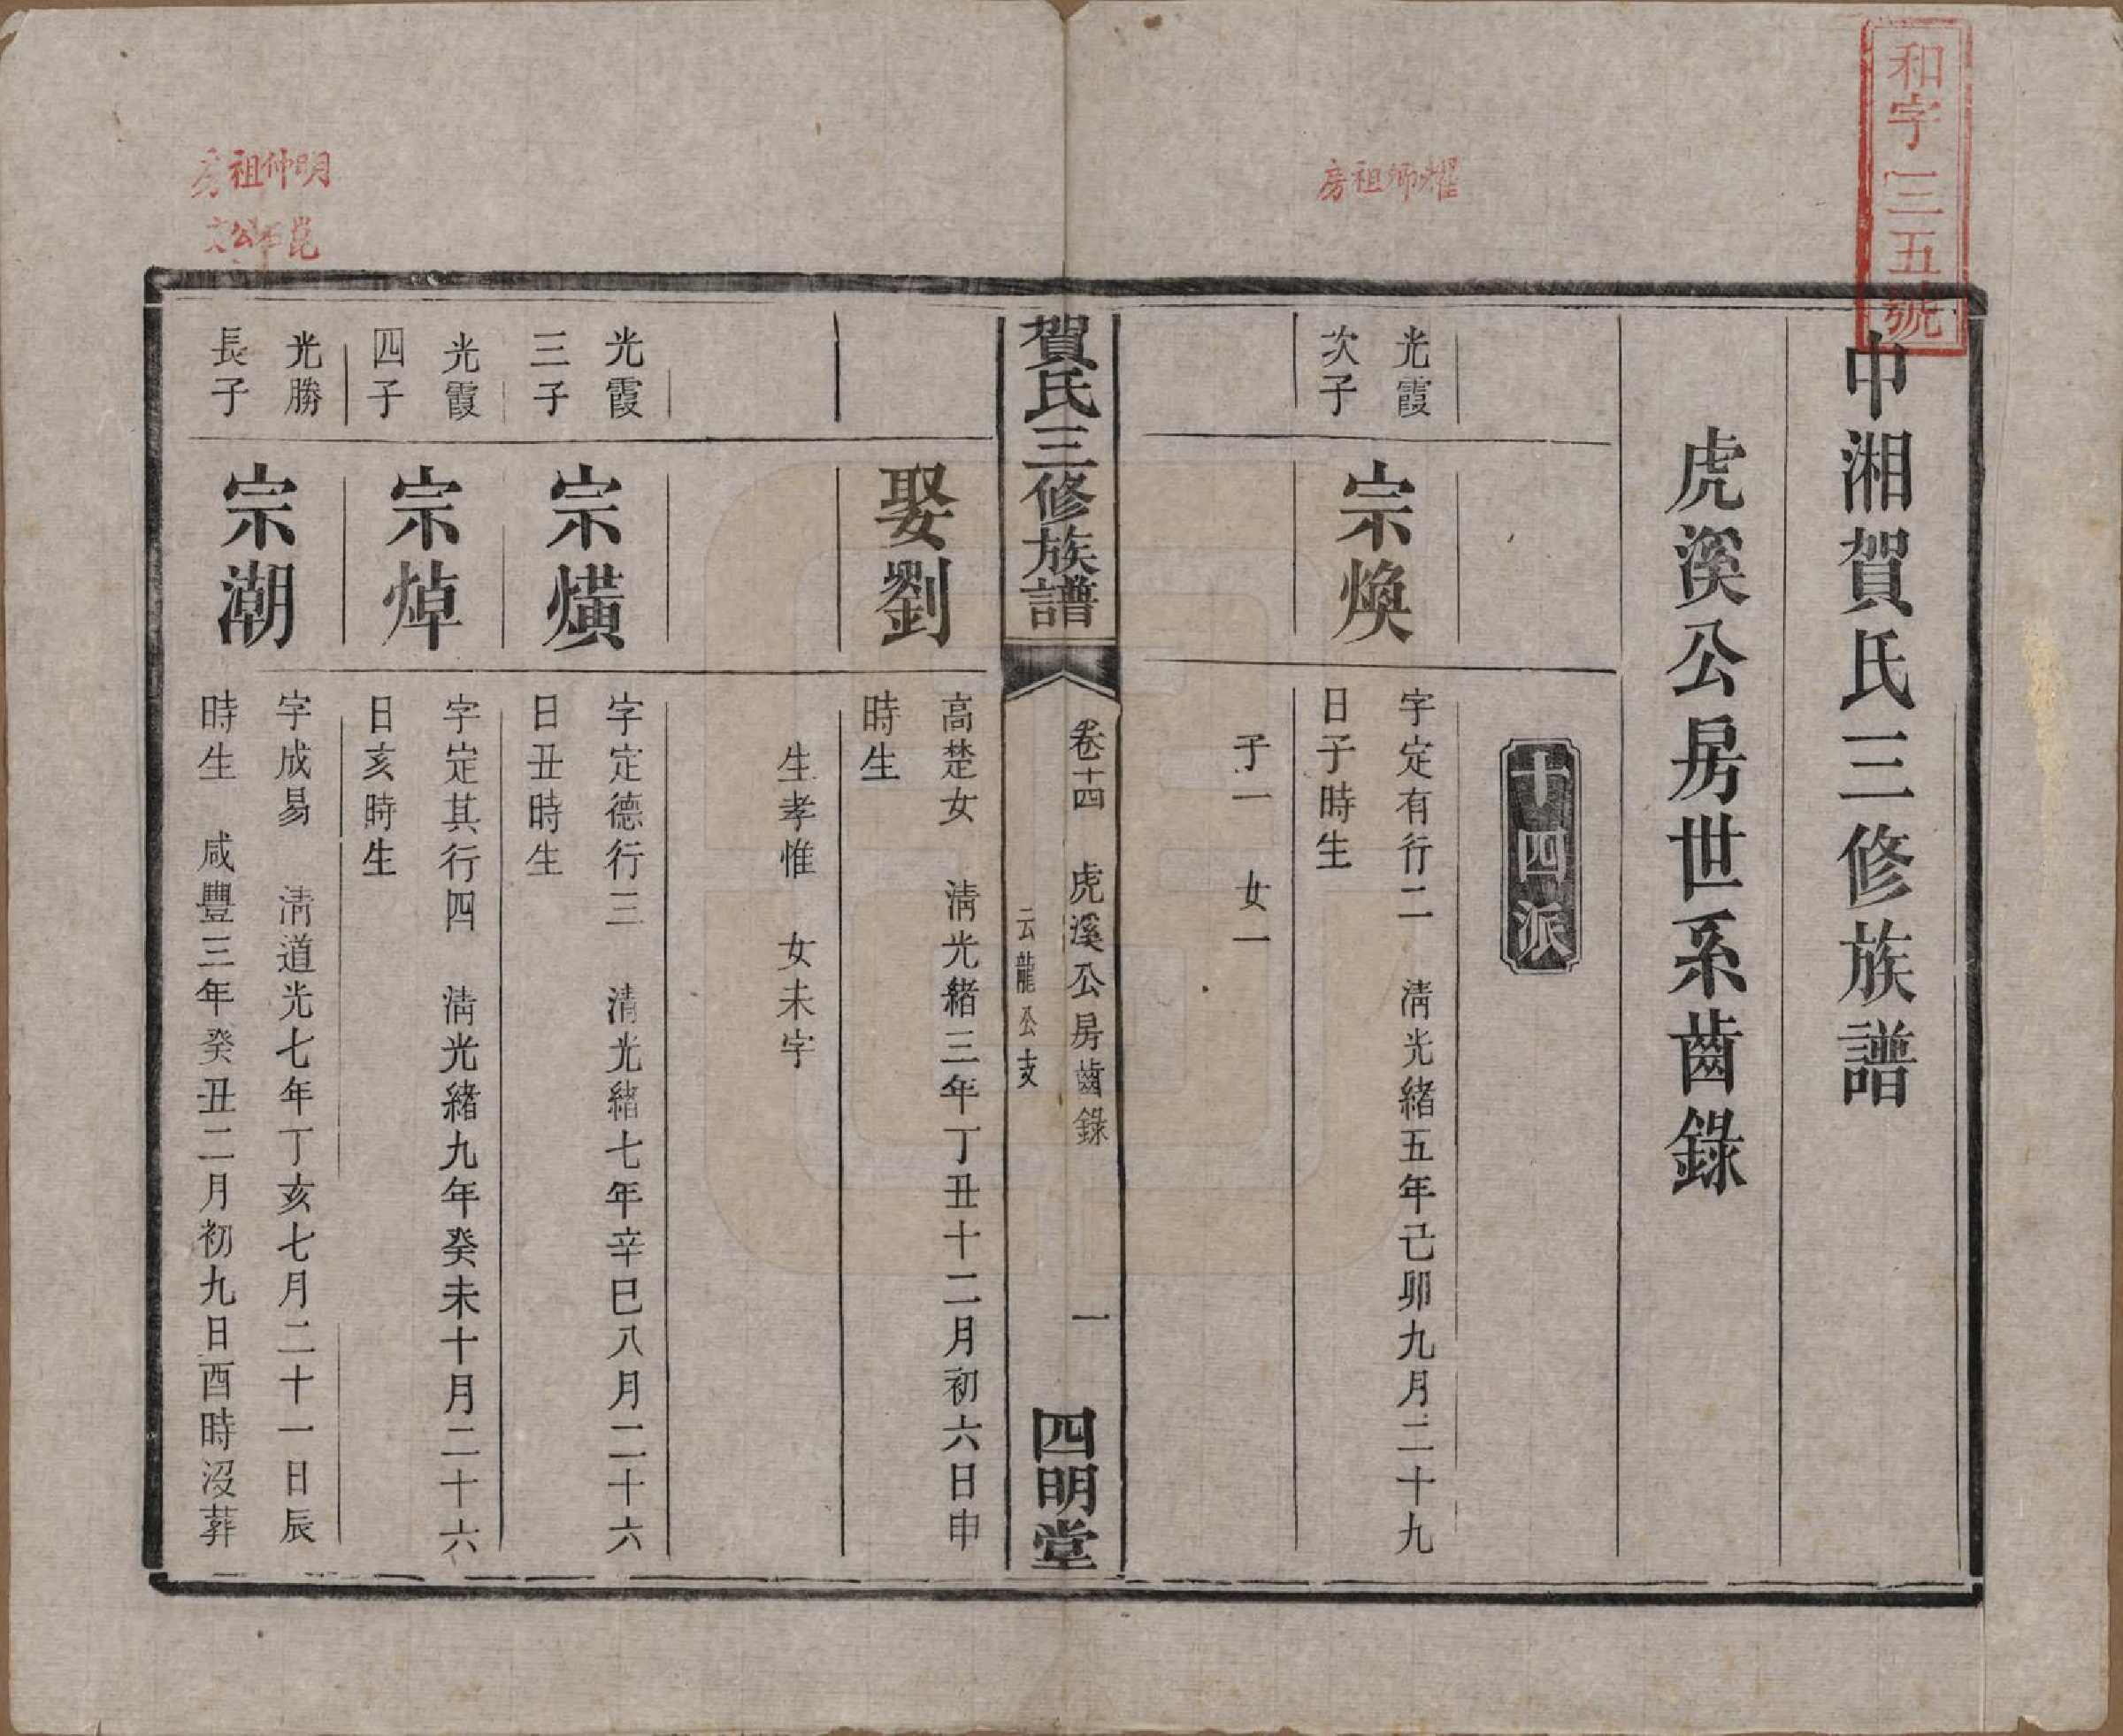 和字三五號
中湘賀氏三修族譜
虎溪公房世系齒錄
十四派
耀卿祖房
光霞
次子
宗煥
字定有行二　淸光緒五年己卯九月二十九
日子時生
子一　女一
賀氏三修族譜
卷十四　虎溪公房齒錄
云龍公支
一
四明堂
娶劉
高楚女　淸光緒三年丁丑十二月初六日申
時生
生孝惟　女未字
光霞
三子
宗熿
字定德行三　淸光緒七年辛巳八月二十六
日丑時生
光霞
四子
宗焯
字定其行四　淸光緒九年癸未十月二十六
日亥時生
明仲祖房
光勝
長子
宗潮
字成易　淸道光七年丁亥七月二十一日辰
時生　咸豐三年癸丑二月初九日酉時沒葬